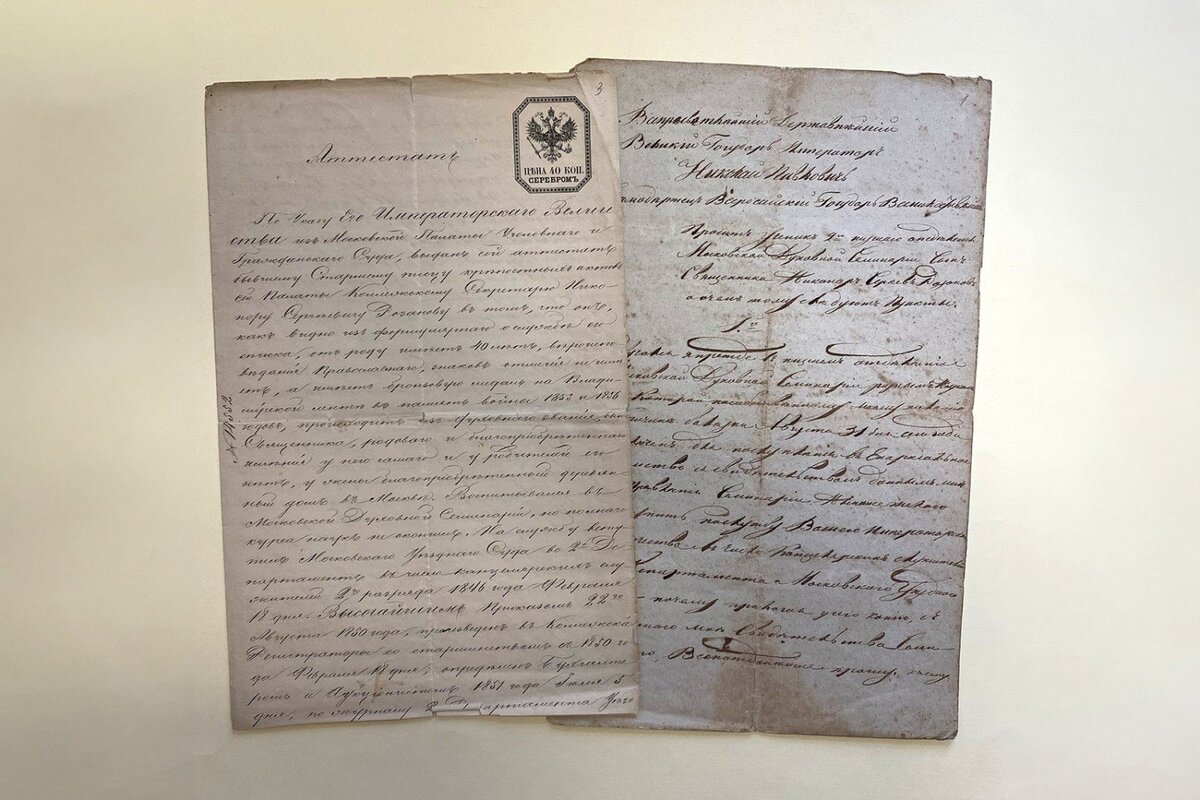 3
ЦѢНА 40 КОП.
СЕРЕБРОМЪ
Аттестатъ
По Указу Его Императорскаго Величе
ства изъ Московской Палаты Уголовнаго и
Гражданскаго Суда, выданъ сей аттестатъ
бывшему Старшему писцу крѣпостныхъ актовъ
сей Палаты Коллежскому Секретарю Ника-
нору Сергѣевичу Розанову въ томъ, что онъ,
какъ видно изъ формулярнаго о службѣ его
списка, отъ роду имѣетъ 40 лѣтъ, вѣроиспо
вѣданія Православнаго, знаковъ отличія не имѣ
етъ, а имѣетъ бронзовую медаль на Влади
мірской лентѣ въ память войны 1853 и 1856
годовъ, происходитъ изъ духовнаго званія, сынъ
Священника, родоваго и благопріобрѣтеннаго
имѣнія у него самаго и у родителей его
нѣтъ, у жены благопріобрѣтенный деревян
ный домъ въ Москвѣ. Воспитывался въ
Московской Духовной Семинаріи, но полнаго
курса наукъ не окончилъ. На службу всту
пилъ Московскаго Уѣзднаго Суда во 2й Де
партаментъ въ число канцелярскихъ слу
жителей 2го разряда 1846 года Февраля
18 дня. Высочайшимъ Приказомъ 22го
Августа 1850 года, произведенъ въ Коллежскіе
Регистраторы со старшинствомъ съ 1850 го
да Февраля 18 дня; опредѣленъ Бухгалте
ромъ и 1851 года Іюля 5
дня, по журналу 2 Департамента Уѣзд
1
Всепресвѣтлѣйшій Державнѣйшій
Великій Государь Императоръ
Николай Павловичъ
Самодержецъ Всероссійскій Государь Всемилостивѣйшій
Проситъ Ученикъ 2го низшаго отдѣленія
Московской Духовной Семинаріи Сынъ
Священника Никаноръ Сергѣевъ Розановъ
о чемъ тому слѣдуютъ Пункты.
1.е
въ низшемъ отдѣленіи
Московской Духовной Семинаріи
Августа 31 дня сего года
свидѣтельствомъ даннымъ мнѣ
Правленія Семинаріи
службу Вашего Императорскаго
въ число Канцелярскихъ служителей
Департамента Московскаго Уѣзднаго
почему прилагая у сего копію съ
мнѣ Свидѣтельства Семи-
Всеподданнѣйше прошу,